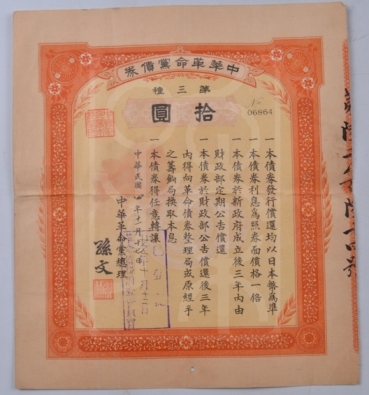 中華革命黨債券
第三種
拾圓
No 06864
一本債券發行償還均以日本幣爲準
一本債券利息爲照券面價格一倍
一本債券於新政府成立後三年內由
財政部定期公告償還
一本債券於財政部公告償還後三年
內得向革命債券整理局或原經手
之籌餉局換取本息
一本債券得任意轉讓
中華民國 年十 月十 日
中華革命黨總理
孫文